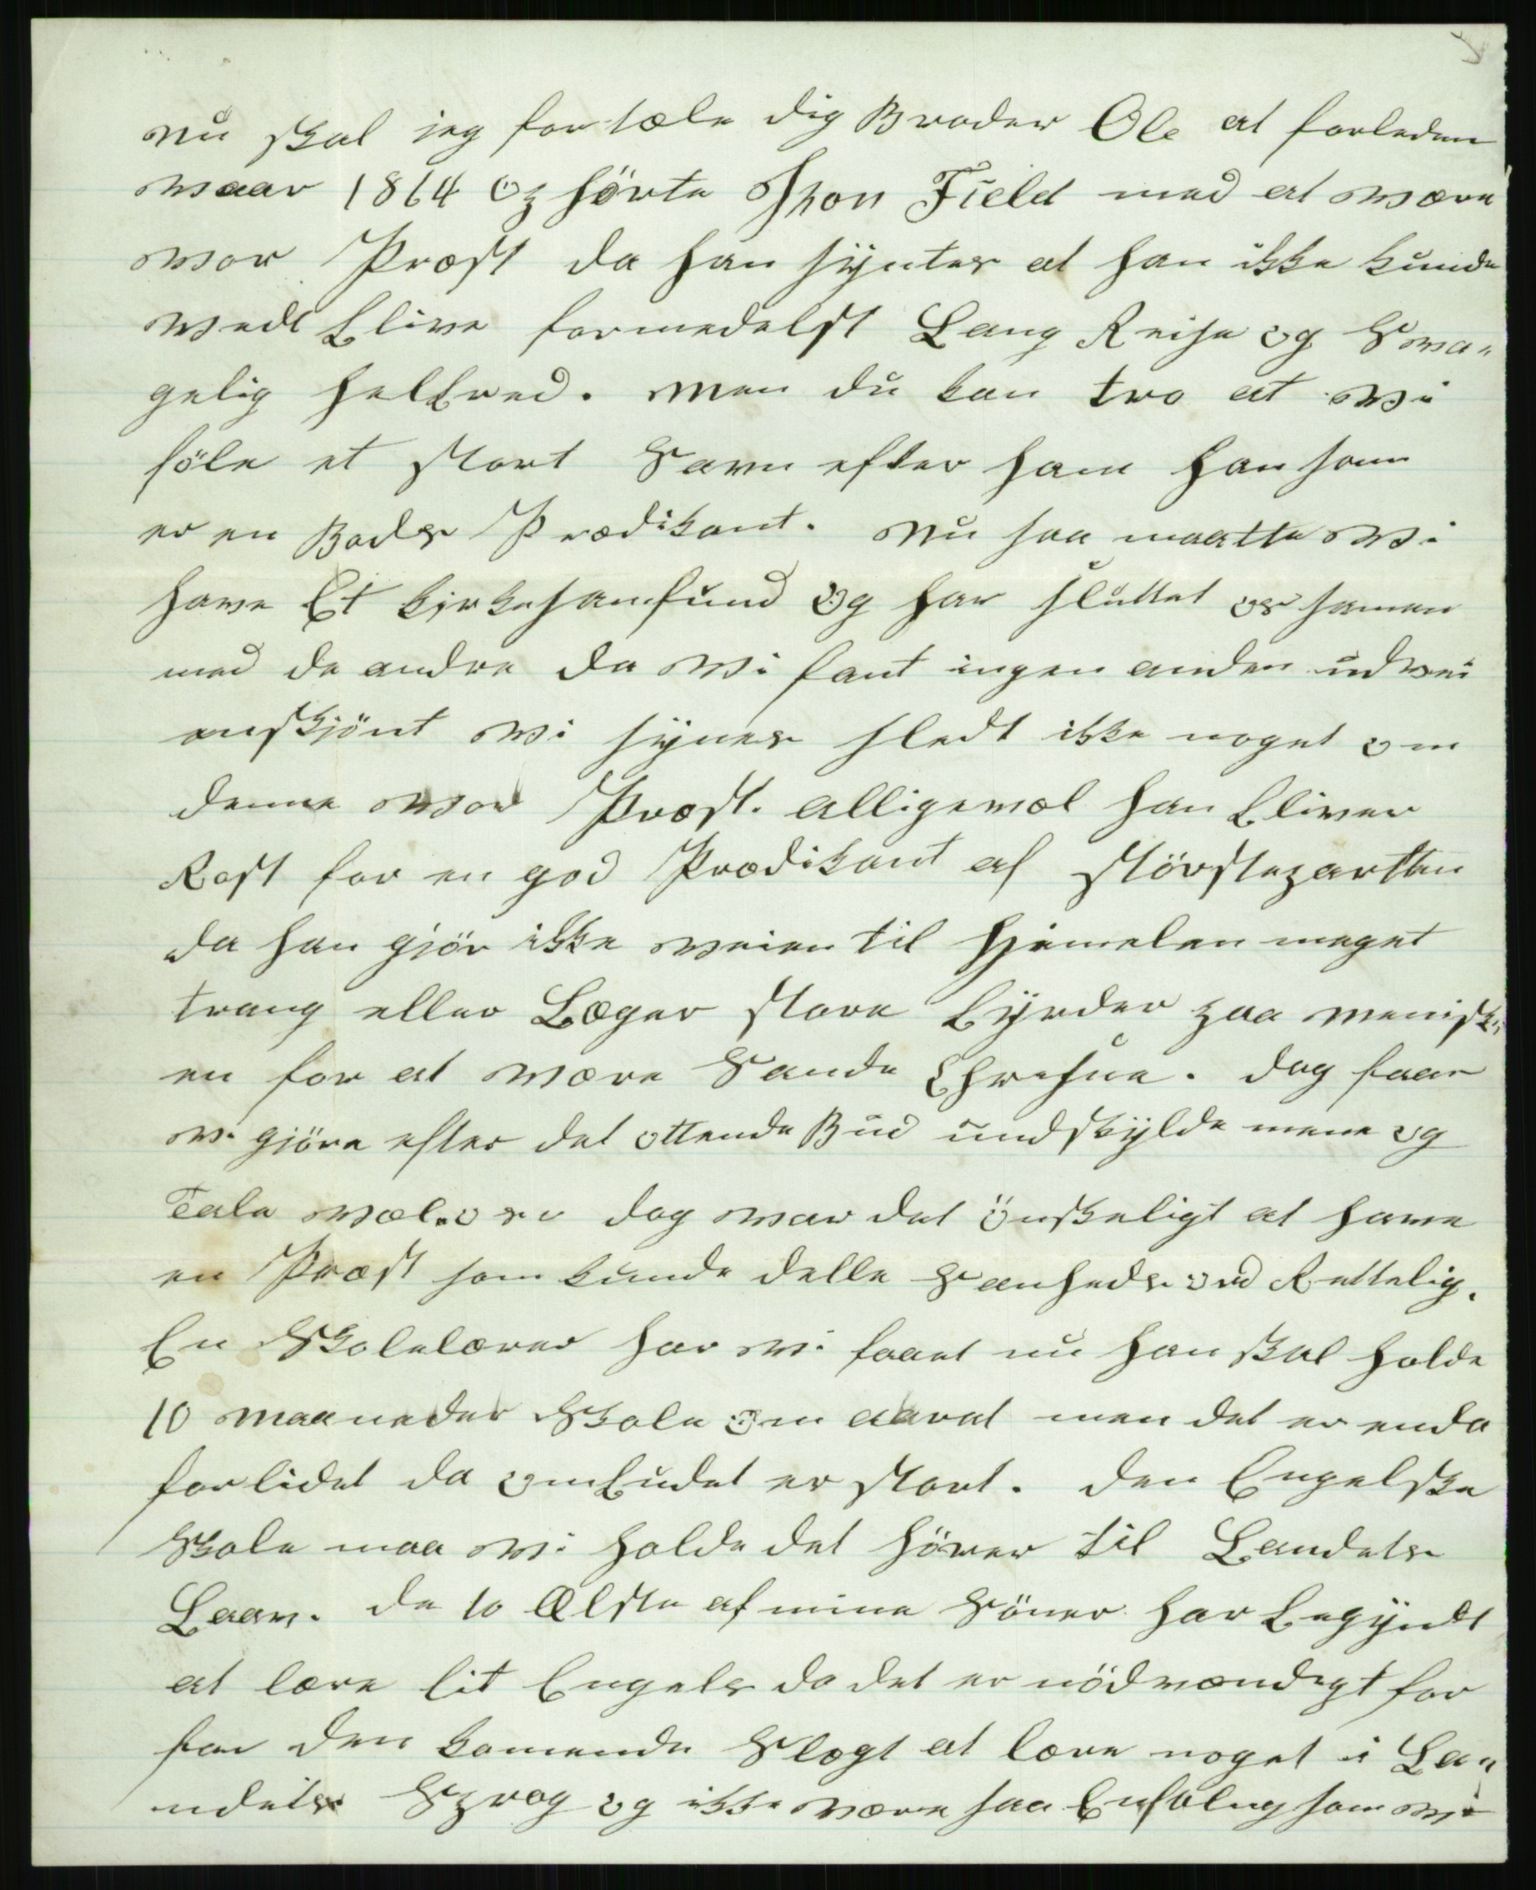 nu skal jeg fortæle dig Broder Ole at forleden
waar 1864 Ophörte Jhon Field med at være
wor Præst da han syntes at han ikke kunde
wedblive formedelst Lang Reise og Swa-
gelig helbred. Men du kan tro at wi
föle et stort Savn efter ham han som
er en Bods Prædikant. Nu saa maatte wi
have Et kirkesamfund Og har sluttet os samen
med de andre da wi fant ingen anden udvei
enskjönt wi synes sledt ikke noget om
denne wor Præst. alligevæl han bliver
Rost for en god Prædikant af störsteparten
da han gjör ikke weien til Hjemelen meget
trang eller Læger store byrder paa menisk-
en for at være Sande Chresne. dog faar
wi gjöre efter det ottende Bud undskylde mene og
Tale wæl. dog war det önskeligt at have
en Præst som kunde delle Sanheds ord Rettelig.
En Skolelærer har wi faaet nu han skal holde
10 maaneder Skole Om aaret men det er enda
forlidet da ombudet er stort. den Engelske
Skole maa wi holde det hörer til Landets
Laav. de to Ælste af mine Söner har begyndt
at lære lit Engels da det er nödvændigt for
for den komende Slægt at lære noget i La-
ndets Sprog og ikke være saa Enfoldig som wi